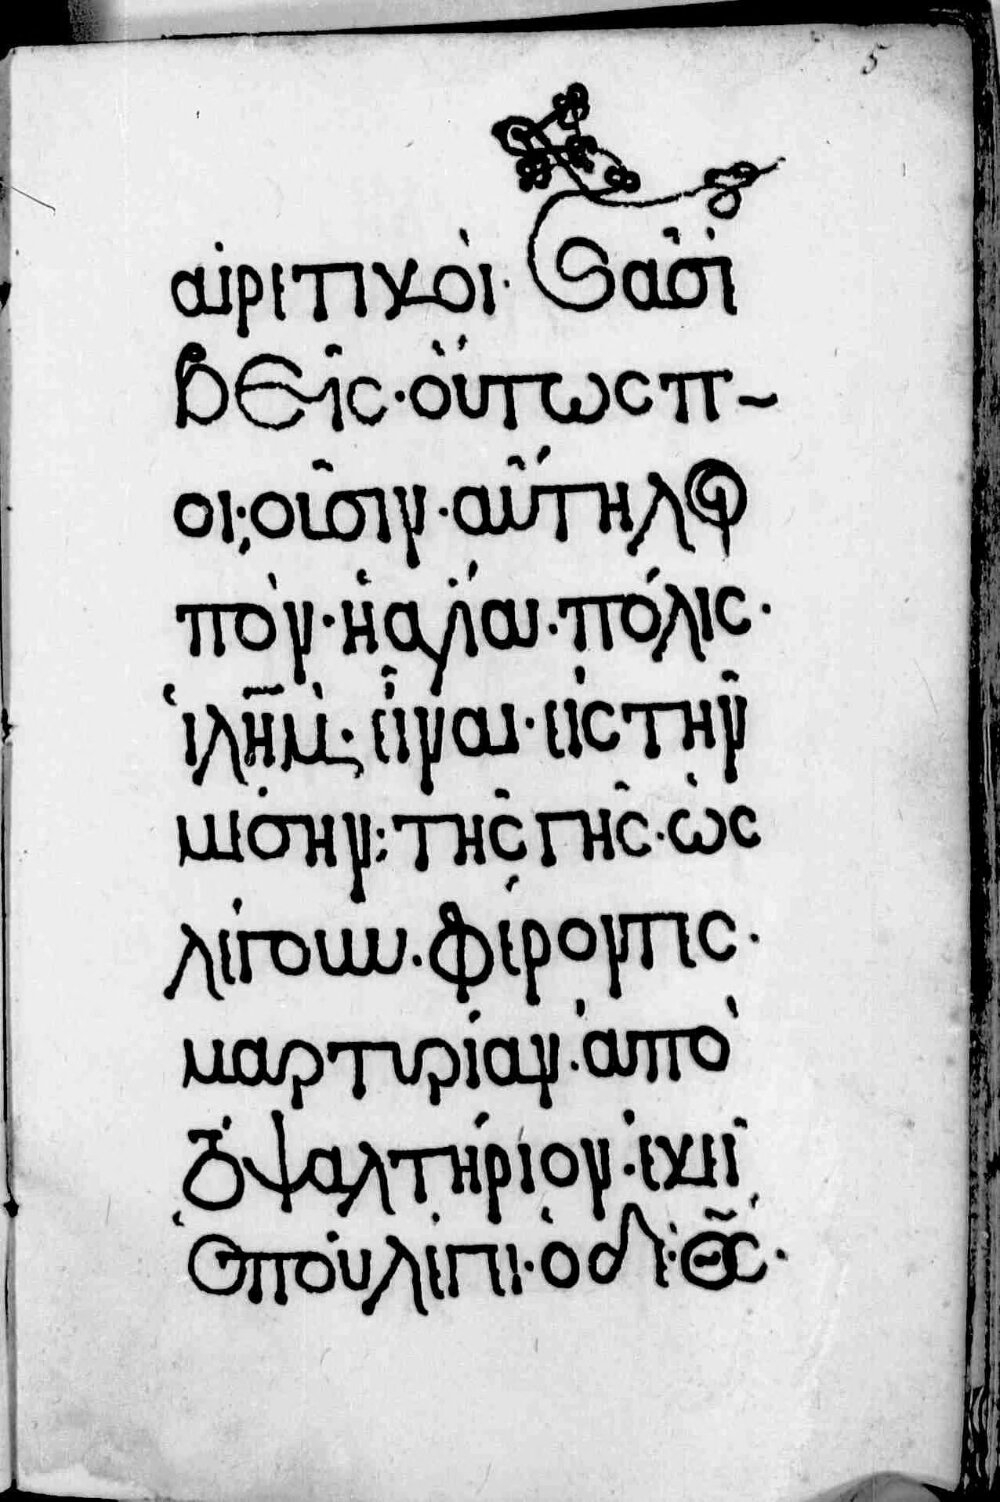 αἱρετικοὶ· ϗ ἀσε
βεῖς· οὕτως π~
οι;οῦσιν· αὕτη λοι
πὸν· ἡ ἁγίαι· πόλις·
Ἱλὴ̅μ̅· εἶναι· εἰς τὴν
μέσην: τῆς γῆς· ὡς
λέγουν· φέροντες·
μαρτυρίαν· ἀπὸ
τὸ ψαλτήριον· ἐκεῖ
Ὁποὺ λέγει· ὁ δὲ· Θς̅·